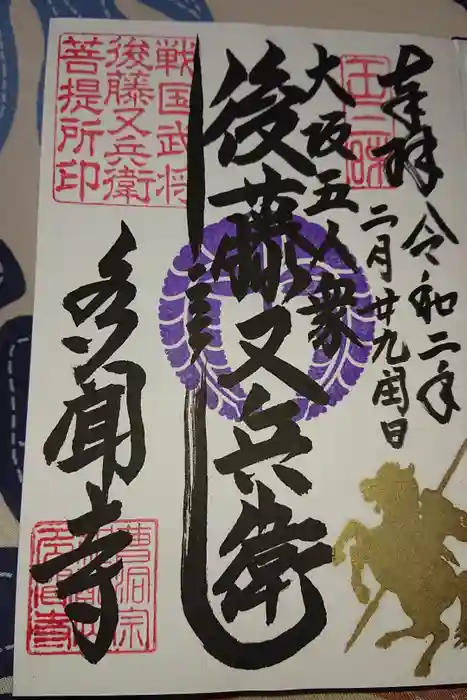 奉拝
令和二年
二月廿九閏日
大坂五人衆
後藤又兵衛
多聞寺
戦国武将
後藤又兵衛
菩提所印
曹洞宗